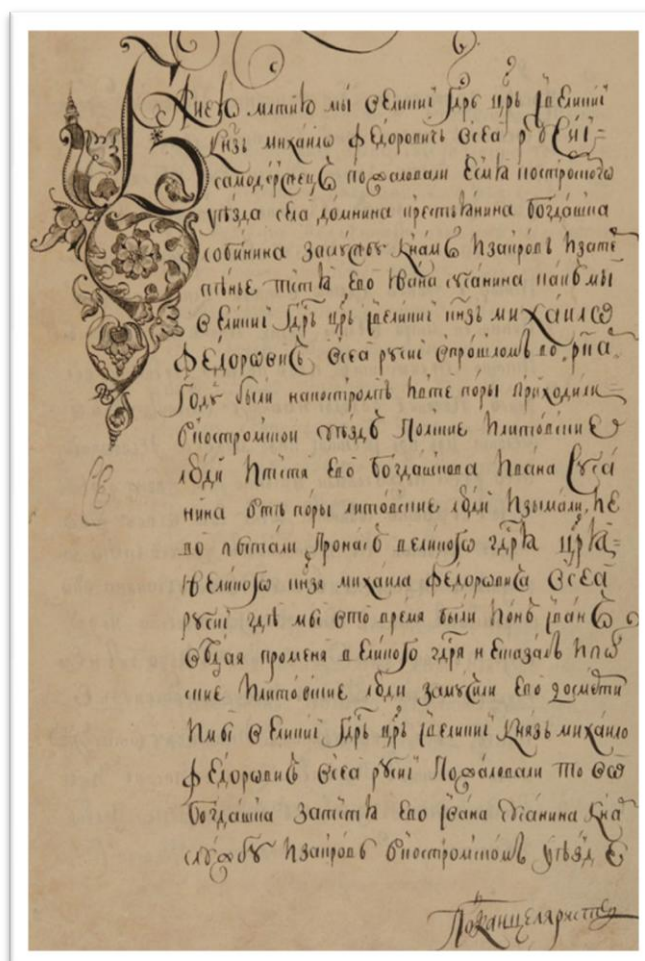 Бжиею млтию мы великиї гдрь црь ївеликиї
кнзь михаило федоровичь всеа русиї
самодержецъ пожаловали есмя костромского
уѣзда села домнина крестьянина богдашка
собинина заслужбу кнамъ изакровь изатер
пѣнье тестя ево ивана сусанина какъ мы
великиї гдрь црь ївеликиї кнзь михаило
федоровичь всеа русиї впрошломъ во рка
году были накостромѣ ивте поры приходили
вкостромскои уѣздъ полские илитовские
люди итестя ево богдашкова ивана суса
нина втѣ поры литовские люди изымали ие
во пытали пронасъ великого гдря црѧ
ївеликого кнзя михаила федоровича всеа
русиї гдѣ мы вто время были ионъ їванъ
вѣдая променя великого гдря несказалъ ипол
ские илитовские люди замучили ево досмерти
имы великиї гдрь црь ївеликиї князь михаило
федоровичь всеа русиї пожаловали то во
богдашка затестя ево ївана сусанина кна
службу изакровь вкостромскомъ уѣзде